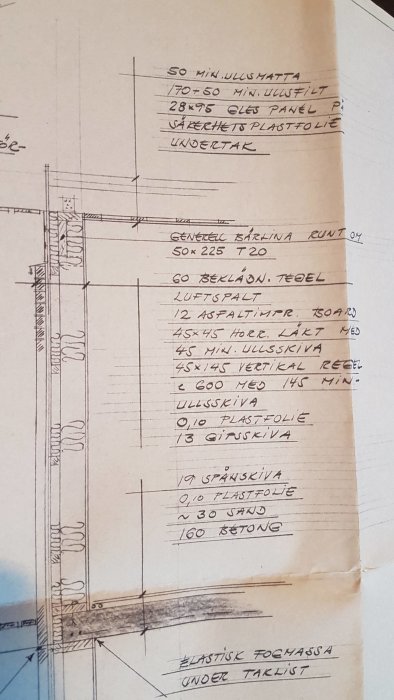 50 MIN. ULLSMATTA
170+50 MIN. ULLSFILT
28×95 GLES PANEL PÅ
SÄKERHETSPLASTFOLIE
UNDERTAK
ÖR-
GENERELL BÄRLINA RUNT OM
50×225 T20
60 BEKLÄDN. TEGEL
LUFTSPALT
12 ASFALTIMPR. BOARD
45×45 HORR. LÄKT MED
45 MIN. ULLSSKIVA
45×145 VERTIKAL REGEL
c 600 MED 145 MIN-
ULLSSKIVA
0,10 PLASTFOLIE
13 GIPSSKIVA
19 SPÅNSKIVA
0,10 PLASTFOLIE
~ 30 SAND
160 BETONG
ELASTISK FOGMASSA
UNDER TAKLIST